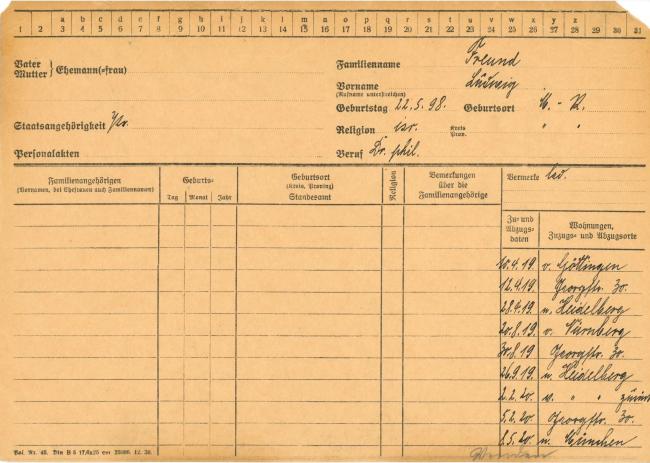 a b c d e f g h i j k l m n o p q r s t u v w x y z
1 2 3 4 5 6 7 8 9 10 11 12 13 14 15 16 17 18 19 20 21 22 23 24 25 26 27 28 29 30 31
Vater
Mutter } Ehemann(=frau)
Staatsangehörigkeit Pr.
Personalakten
Familienname Freund
Vorname Ludwig
(Rufname unterstreichen)
Geburtstag 22.5.98. Geburtsort M.-R.
Religion isr. Kreis " "
Prov.
Beruf Dr. phil.
Familienangehörigen
(Vornamen, bei Ehefrauen auch Familiennamen)
Geburts-
Tag Monat Jahr
Geburtsort
(Kreis, Provinz)
Standesamt
Religion
Bemerkungen
über die
Familienangehörige
Vermerke led.
Zu- und
Abzugs-
daten
Wohnungen,
Zuzugs- und Abzugsorte
10.4.19. v. Göttingen
12.4.19. Georgstr. 30.
28.4.19. n. Heidelberg
20.8.19. v. Nürnberg
30.8.19 Georgstr. 30.
26.9.19 n. Heidelberg
2.2.20. v. " " zurück
5.2.20. Georgstr. 30.
8.5.20. n. München
Pol. Nr. 45. Din B 5 17,6x25 cm 12. 30.